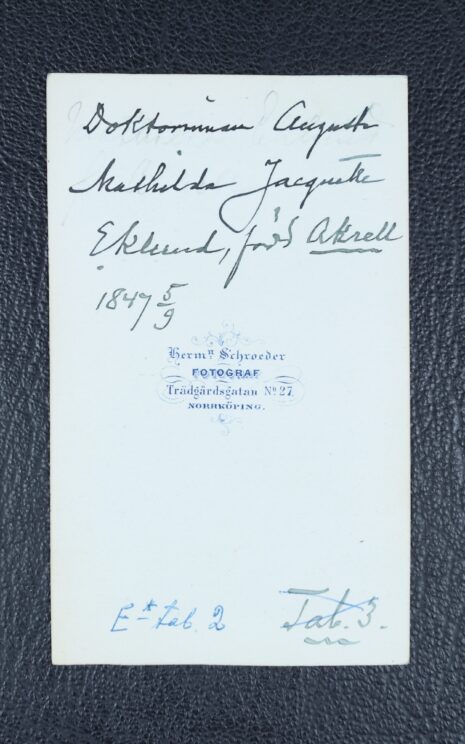 Doktorinnan Augusta
Mathilda Jacquette
Eklund, född Akrell
1847 5/9
Hermn Schroeder
FOTOGRAF
Trädgårdsgatan No 27
NORRKÖPING.
E* tab. 2
Tab. 3.